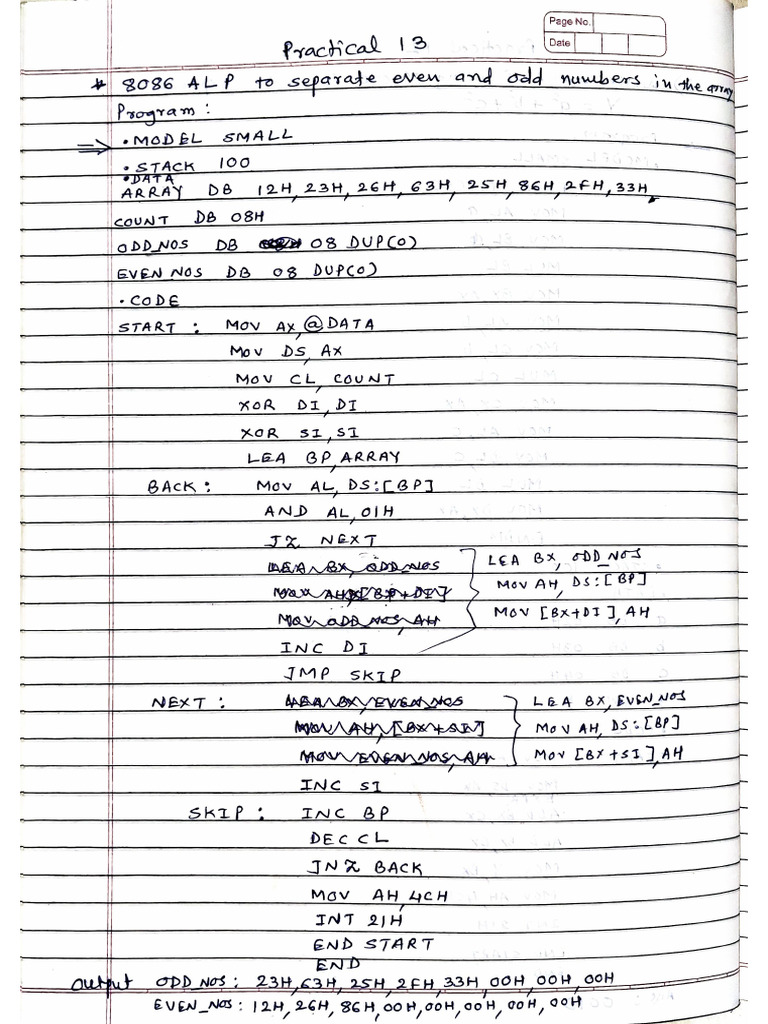 Page No.
Date
Practical 13
* 8086 ALP to separate even and odd numbers in the array
Program :
⇒ .MODEL SMALL
.STACK 100
.DATA
ARRAY DB 12H, 23H, 26H, 63H, 25H, 86H, 2FH, 33H
COUNT DB 08H
ODD_NOS DB 08 DUP(0)
EVEN NOS DB 08 DUP(0)
.CODE
START : MOV AX, @DATA
MOV DS, AX
MOV CL, COUNT
XOR DI, DI
XOR SI, SI
LEA BP, ARRAY
BACK : MOV AL, DS:[BP]
AND AL, 01H
JZ NEXT
LEA BX, ODD_NOS LEA BX, ODD_NOS
MOV AH, [BP+DI] MOV AH, DS:[BP]
MOV ODD_NOS, AH MOV [BX+DI], AH
INC DI
JMP SKIP
NEXT : LEA BX, EVEN_NOS LEA BX, EVEN_NOS
MOV AH, [BX+SI] MOV AH, DS:[BP]
MOV EVEN_NOS, AH MOV [BX+SI], AH
INC SI
SKIP : INC BP
DEC CL
JNZ BACK
MOV AH, 4CH
INT 21H
END START
END
Output ODD_NOS : 23H, 63H, 25H, 2FH, 33H, 00H, 00H, 00H
EVEN_NOS : 12H, 26H, 86H, 00H, 00H, 00H, 00H, 00H